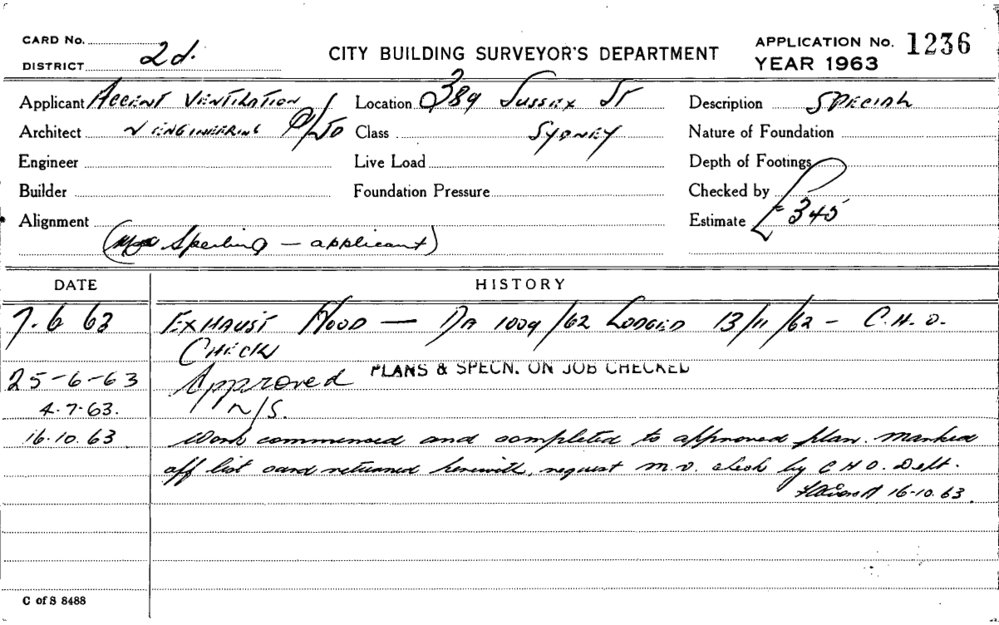 CARD No.
DISTRICT 2d.
CITY BUILDING SURVEYOR'S DEPARTMENT
APPLICATION No. 1236
YEAR 1963
Applicant Accent Ventilation
Location 389 Sussex St
Description Special
Architect & Engineering P/L
Class Sydney
Nature of Foundation
Engineer
Live Load
Depth of Footings
Builder
Foundation Pressure
Checked by
Alignment
Estimate £345
( Sperling - applicant)
DATE
HISTORY
7.6 63 Exhaust Hood — DA 1009/62 Lodged 13/11/62 - C.H.O.
Check
25-6-63 Approved PLANS & SPECN. ON JOB CHECKED
4.7.63. N/S.
16.10.63 Work commenced and completed to approved plan. Marked
off list card returned herewith, request m.v. check by C H O. Dept.
16-10.63.
C of S 8488